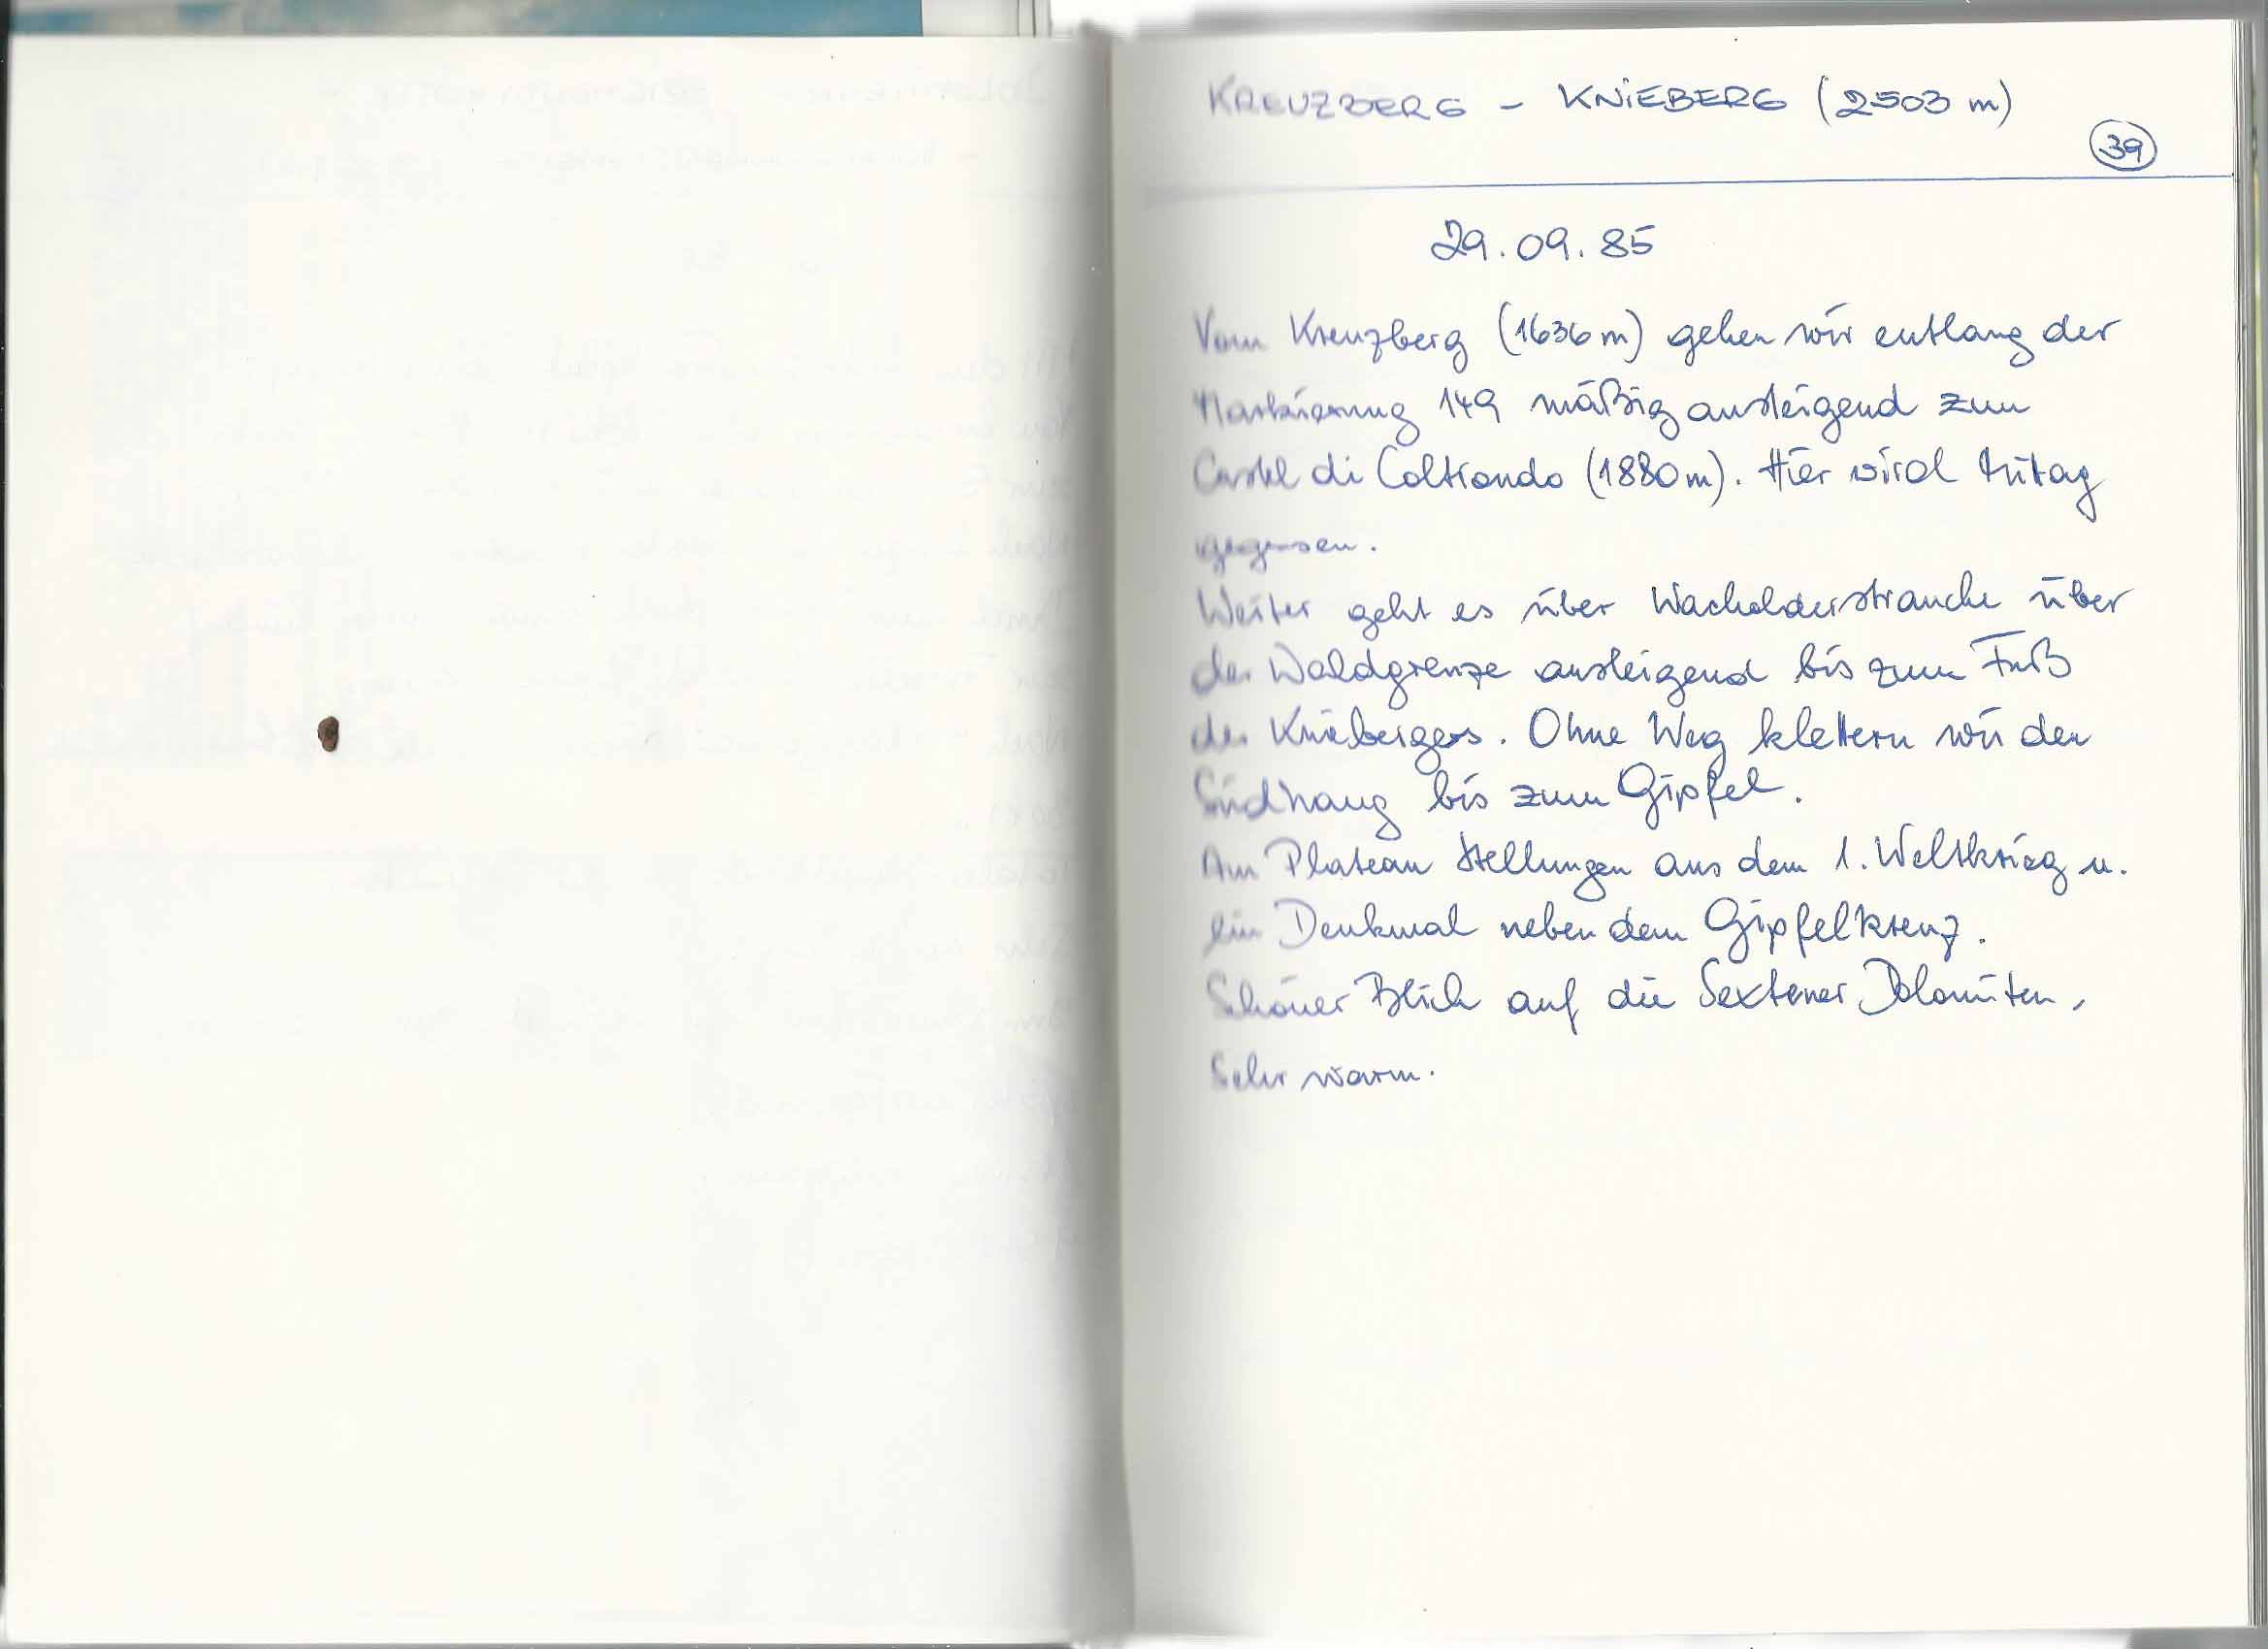 KREUZBERG – KNIEBERG (2503 m)
39
29.09.85
Vom Kreuzberg (1636 m) gehen wir entlang der
Markierung 149 mäßig ansteigend zum
Castel di Coltrondo (1880 m). Hier wird Mittag
gegessen.
Weiter geht es über Wacholdersträuche über
der Waldgrenze ansteigend bis zum Fuß
des Knieberges. Ohne Weg klettern wir den
Südhang bis zum Gipfel.
Am Plateau Stellungen aus dem 1. Weltkrieg u.
ein Denkmal neben dem Gipfelkreuz.
Schöner Blick auf die Sextener Dolomiten.
Sehr warm.